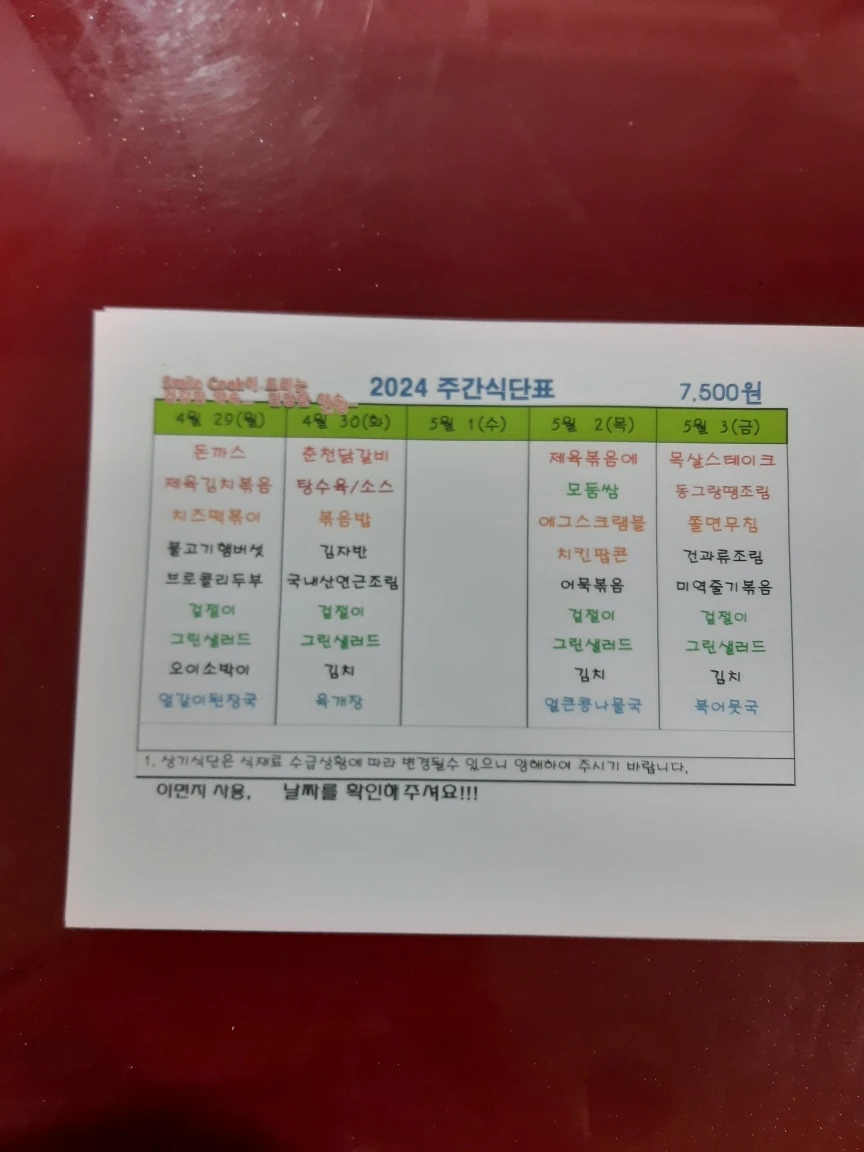 Smile Cook이 드리는
2024 주간식단표 7,500원
4월 29(월) 4월 30(화) 5월 1(수) 5월 2(목) 5월 3(금)
돈까스 춘천닭갈비 제육볶음에 목살스테이크
제육김치볶음 탕수육/소스 모둠쌈 동그랑땡조림
치즈떡볶이 볶음밥 에그스크램블 쫄면무침
불고기햄버섯 김자반 치킨팝콘 건과류조림
브로콜리두부 국내산연근조림 어묵볶음 미역줄기볶음
겉절이 겉절이 겉절이 겉절이
그린샐러드 그린샐러드 그린샐러드 그린샐러드
오이소박이 김치 김치 김치
얼갈이된장국 육개장 얼큰콩나물국 북어뭇국
1. 상기식단은 식재료 수급상황에 따라 변경될수 있으니 양해하여 주시기 바랍니다.
이면지 사용, 날짜를 확인해주셔요!!!